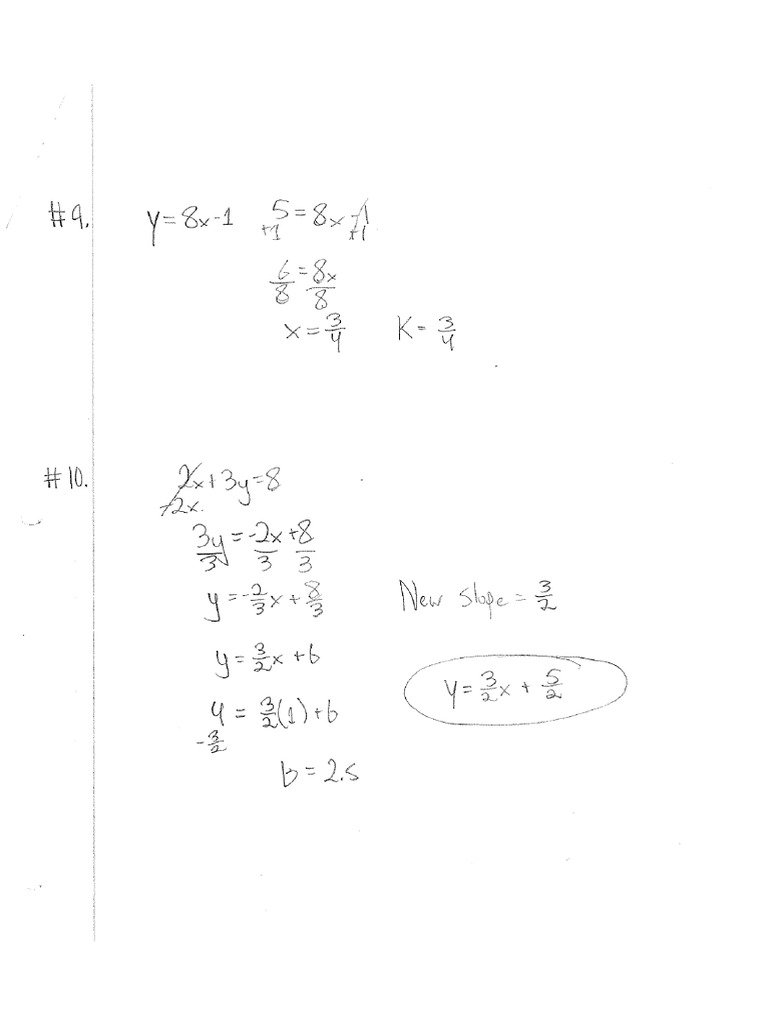 #9. y=8x-1 5=8x-1
+1 +1
6/8=8x/8
x=3/4 K=3/4
#10. 2x+3y=8
-2x
3y/3=-2x/3+8/3
y=-2/3x+8/3 New slope=3/2
y=3/2x+b
y=3/2x+5/2
4=3/2(1)+b
-3/2
b=2.5